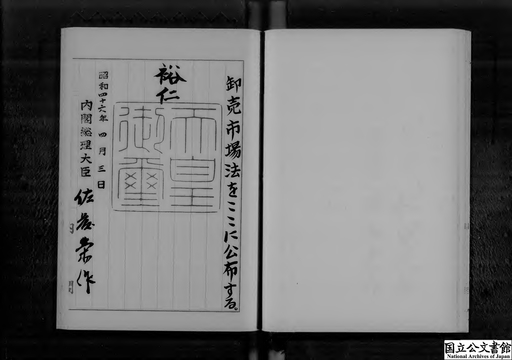 卸売市場法をここに公布する。
裕仁
天皇
御璽
昭和四十六年四月三日
内閣総理大臣 佐藤栄作
国立公文書館
National Archives of Japan